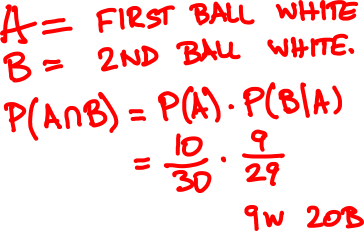 A = FIRST BALL WHITE
B = 2ND BALL WHITE.
P(A∩B) = P(A) · P(B|A)
= 10/30 · 9/29
9W 20B